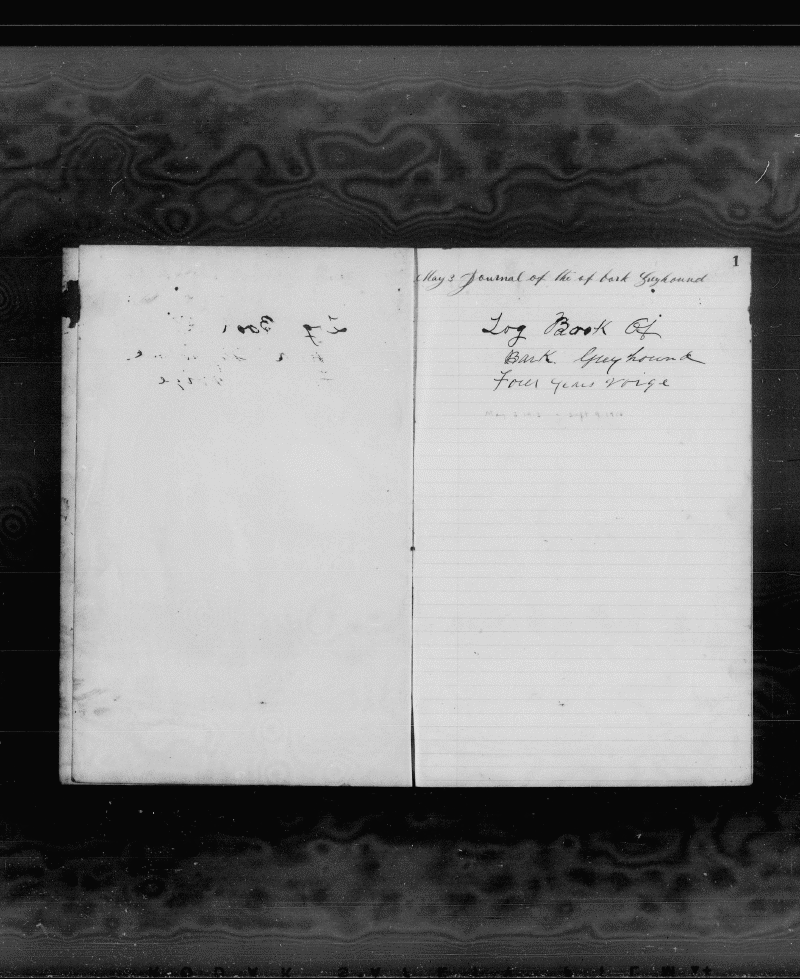 1
May 3 Journal of the of bark Greyhound
Log Book Of
Bark Greyhound
Four years voige